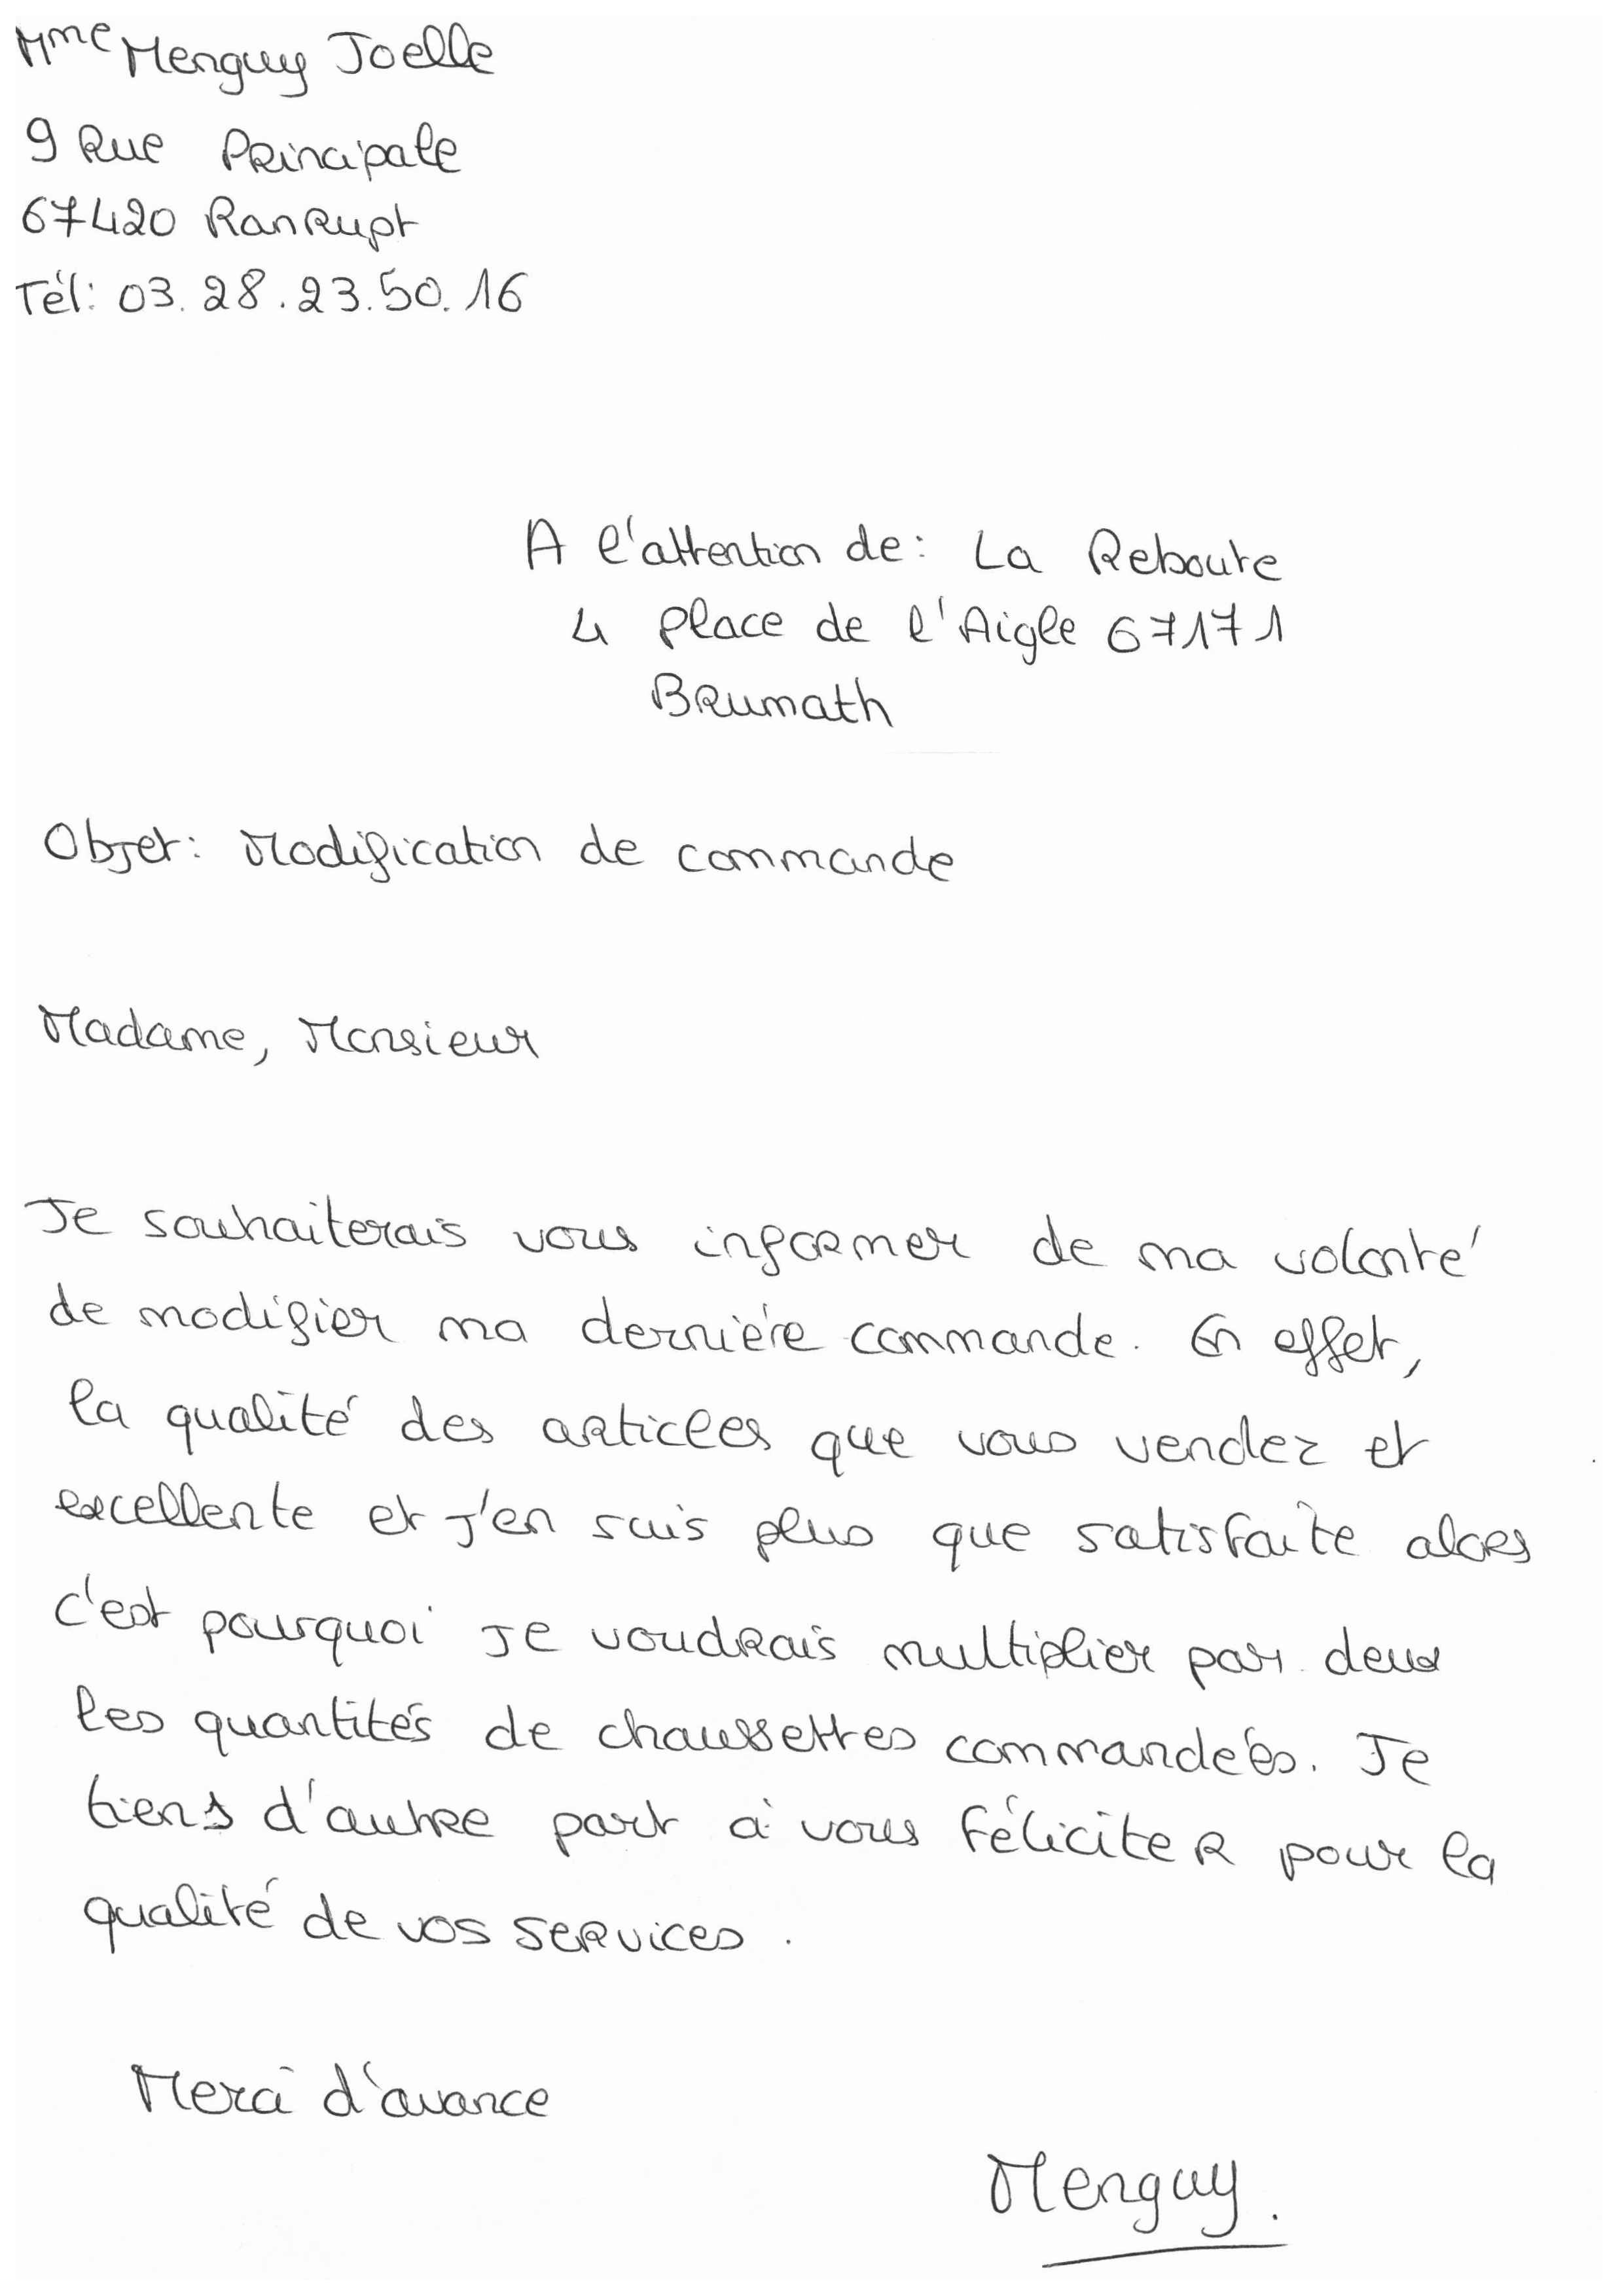 Mme Menguy Joelle
9 Rue Principale
67420 Ranrupt
Tél: 03.28.23.50.16
A l'attention de: La Reboute
4 place de l'Aigle 67171
Brumath
Objet: Modification de commande
Madame, Monsieur
Je souhaiterais vous informer de ma volonté
de modifier ma dernière commande. En effet,
la qualité des articles que vous vendez et
excellente et j'en suis plus que satisfaite alors
c'est pourquoi je voudrais multiplier par deux
les quantités de chaussettes commandées. Je
tiens d'autre part à vous féliciter pour la
qualité de vos services.
Merci d'avance
Menguy.